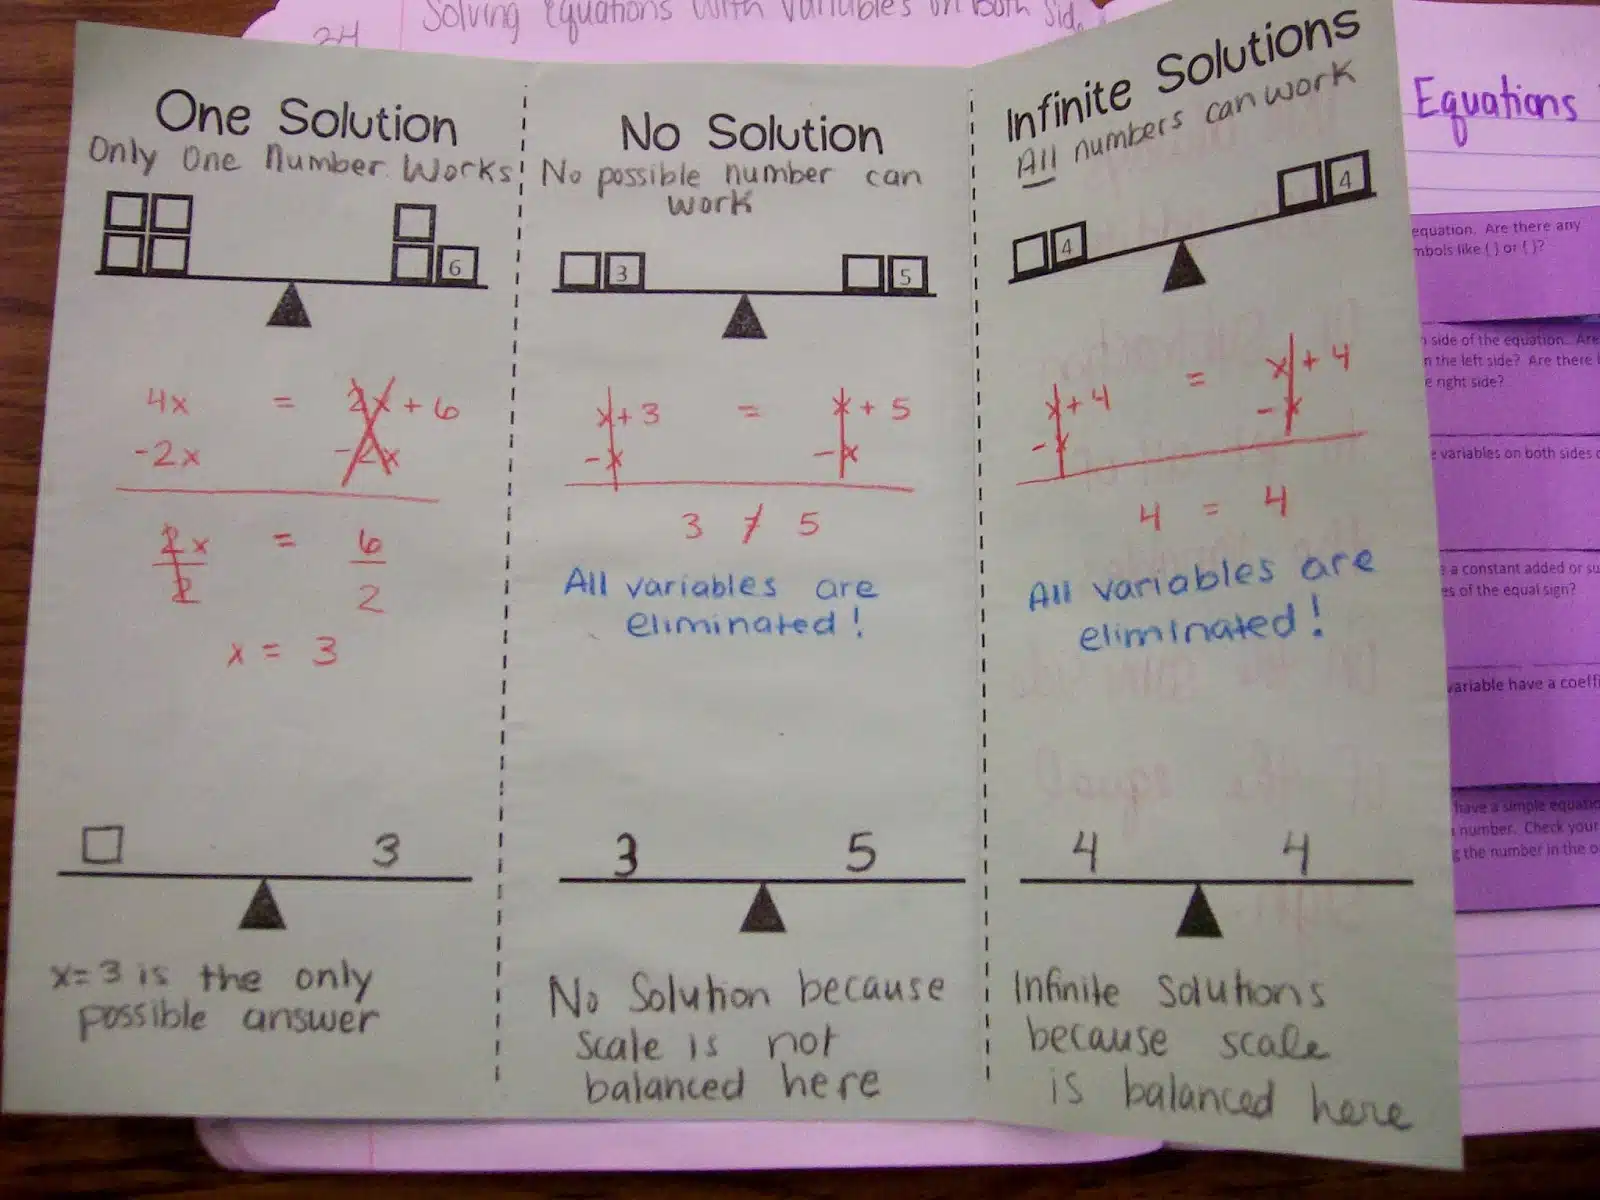 24
Solving Equations with Variables on Both Side
One Solution
Only One Number Works
6
4x = 2x + 6
-2x -2x
2x = 6
2 2
x = 3
3
x=3 is the only
possible answer
No Solution
No possible number can
work
3 5
x+3 = x + 5
-x -x
3 ≠ 5
All variables are
eliminated!
3 5
No Solution because
scale is not
balanced here
Infinite Solutions
All numbers can work
4 4
x+4 = x+4
-x -x
4 = 4
All variables are
eliminated!
4 4
Infinite Solutions
because scale
is balanced here
Equations
equation. Are there any
mbols like ( ) or { }?
side of the equation. Are
n the left side? Are there
right side?
variables on both sides
a constant added or su
es of the equal sign?
variable have a coeffi
have a simple equatio
number. Check your
the number in the o